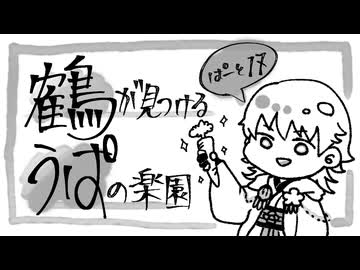 鶴が見つける
うぱの楽園
ぱーと17